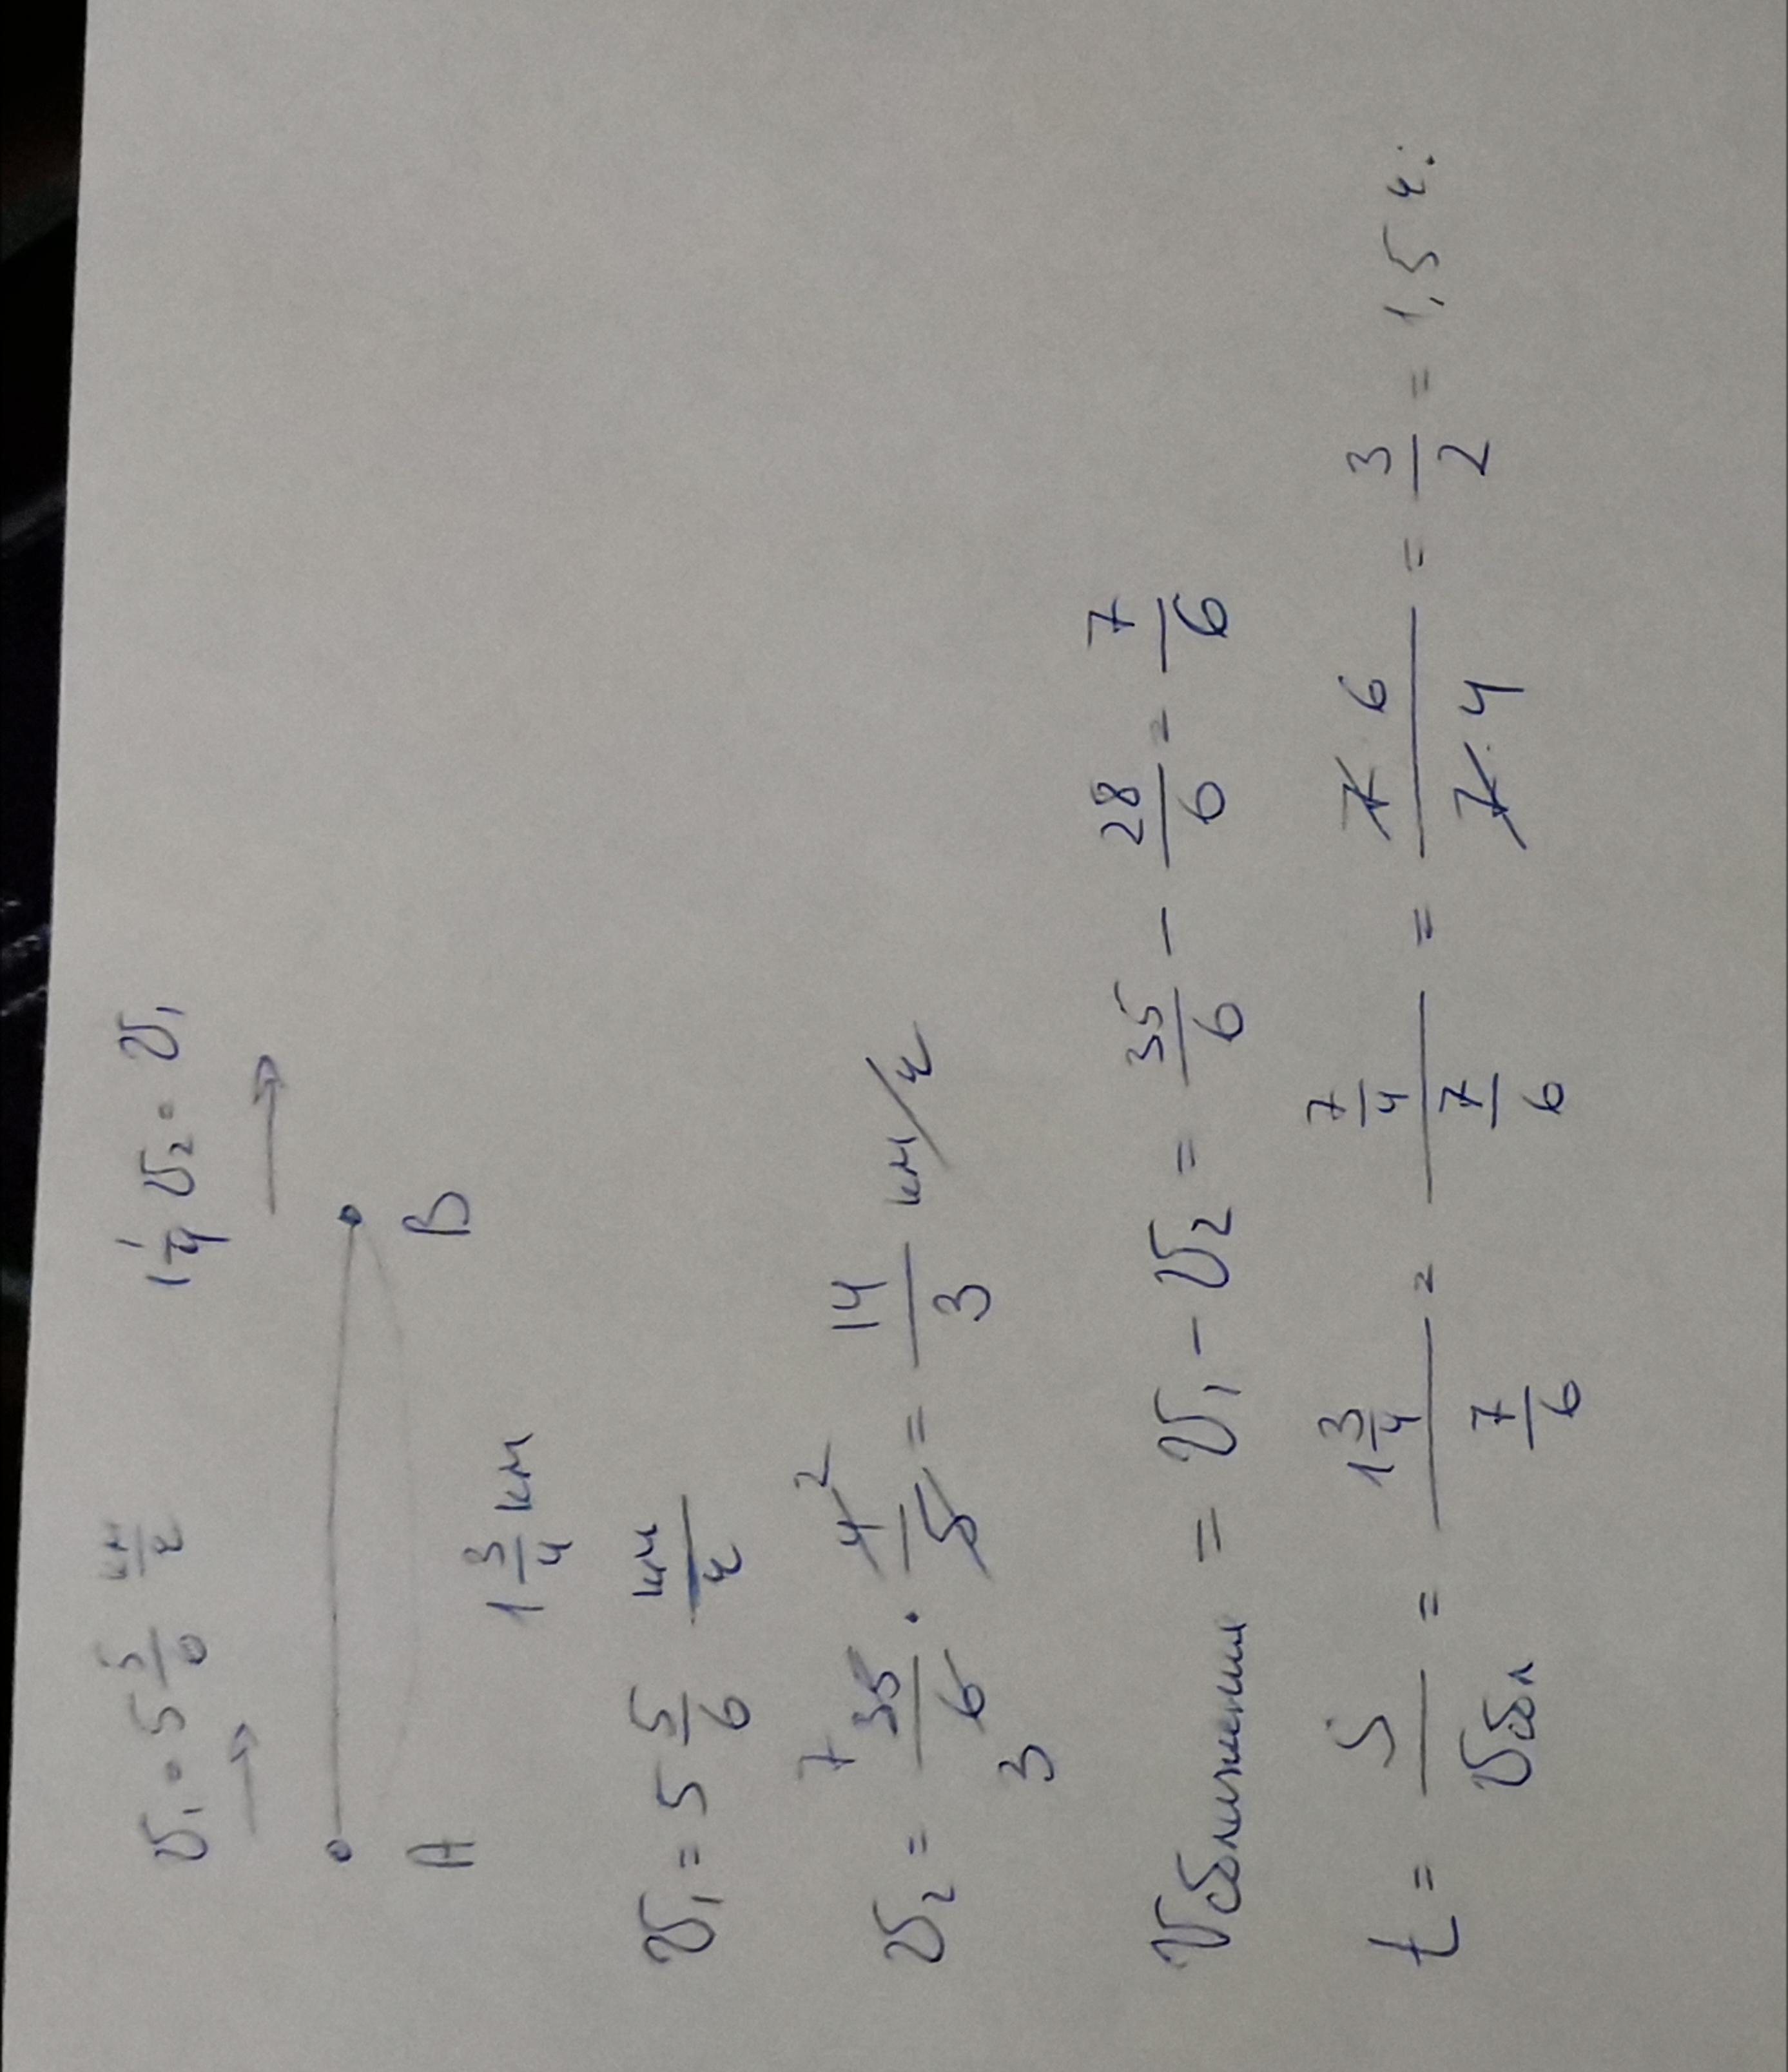 V₁ = 5 5/6 км/ч 1 1/4 V₂ = V₁
A B
1 3/4 км
V₁ = 5 5/6 км/ч
V₂ = 35/6 7 3 · 4/5 2 = 14/3 км/ч
Vсближения = V₁ - V₂ = 35/6 - 28/6 = 7/6
t = S/Vсбл = (1 3/4)/(7/6) = (7/4)/(7/6) = (7 · 6)/(7 · 4) = 3/2 = 1,5 ч.